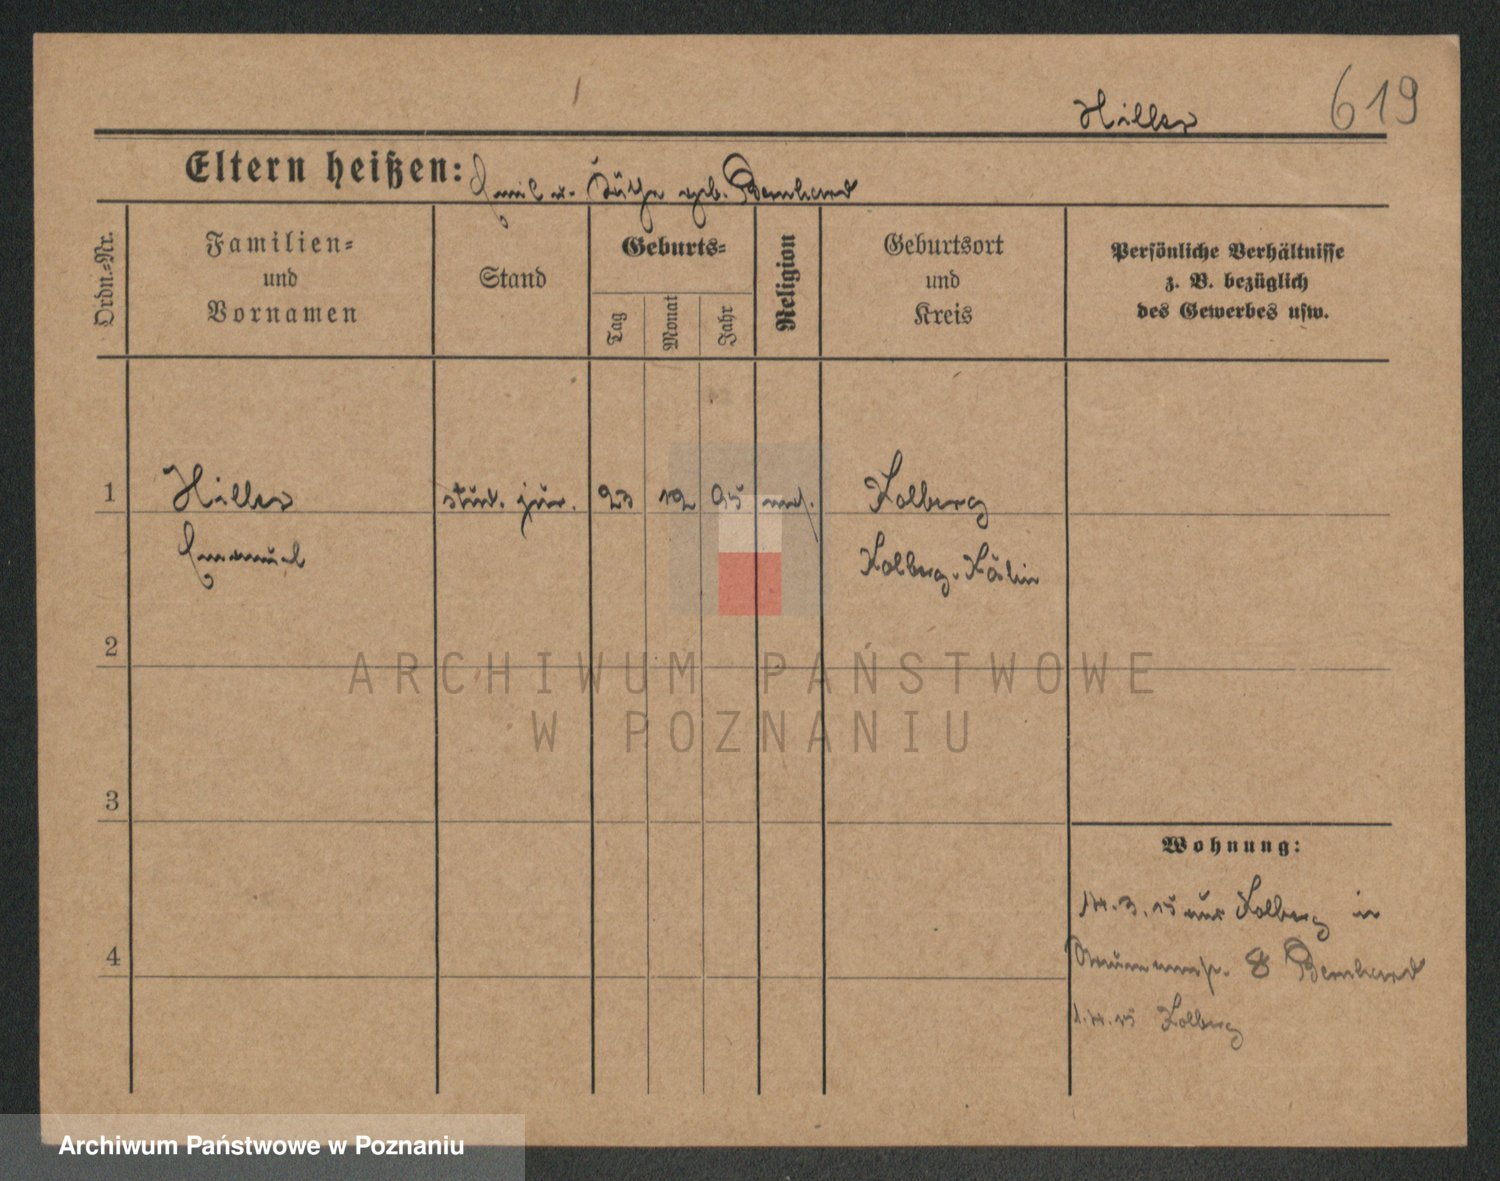 619
Hiller
Eltern heißen: Emil u. geb. Bernhard
Ordn.=Nr.
Familien=
und
Vornamen
Stand
Geburts=
Tag
Monat
Jahr
Religion
Geburtsort
und
Kreis
Persönliche Verhältnisse
z. B. bezüglich
des Gewerbes usw.
1
Hiller
stud. jur. 23 12 95
Kolberg
Emanuel
Kolberg-Köslin
2
ARCHIWUM PAŃSTWOWE
W POZNANIU
3
Wohnung:
3. 15 aus Kolberg in
4
8 Bernhard
15 Kolberg
Archiwum Państwowe w Poznaniu